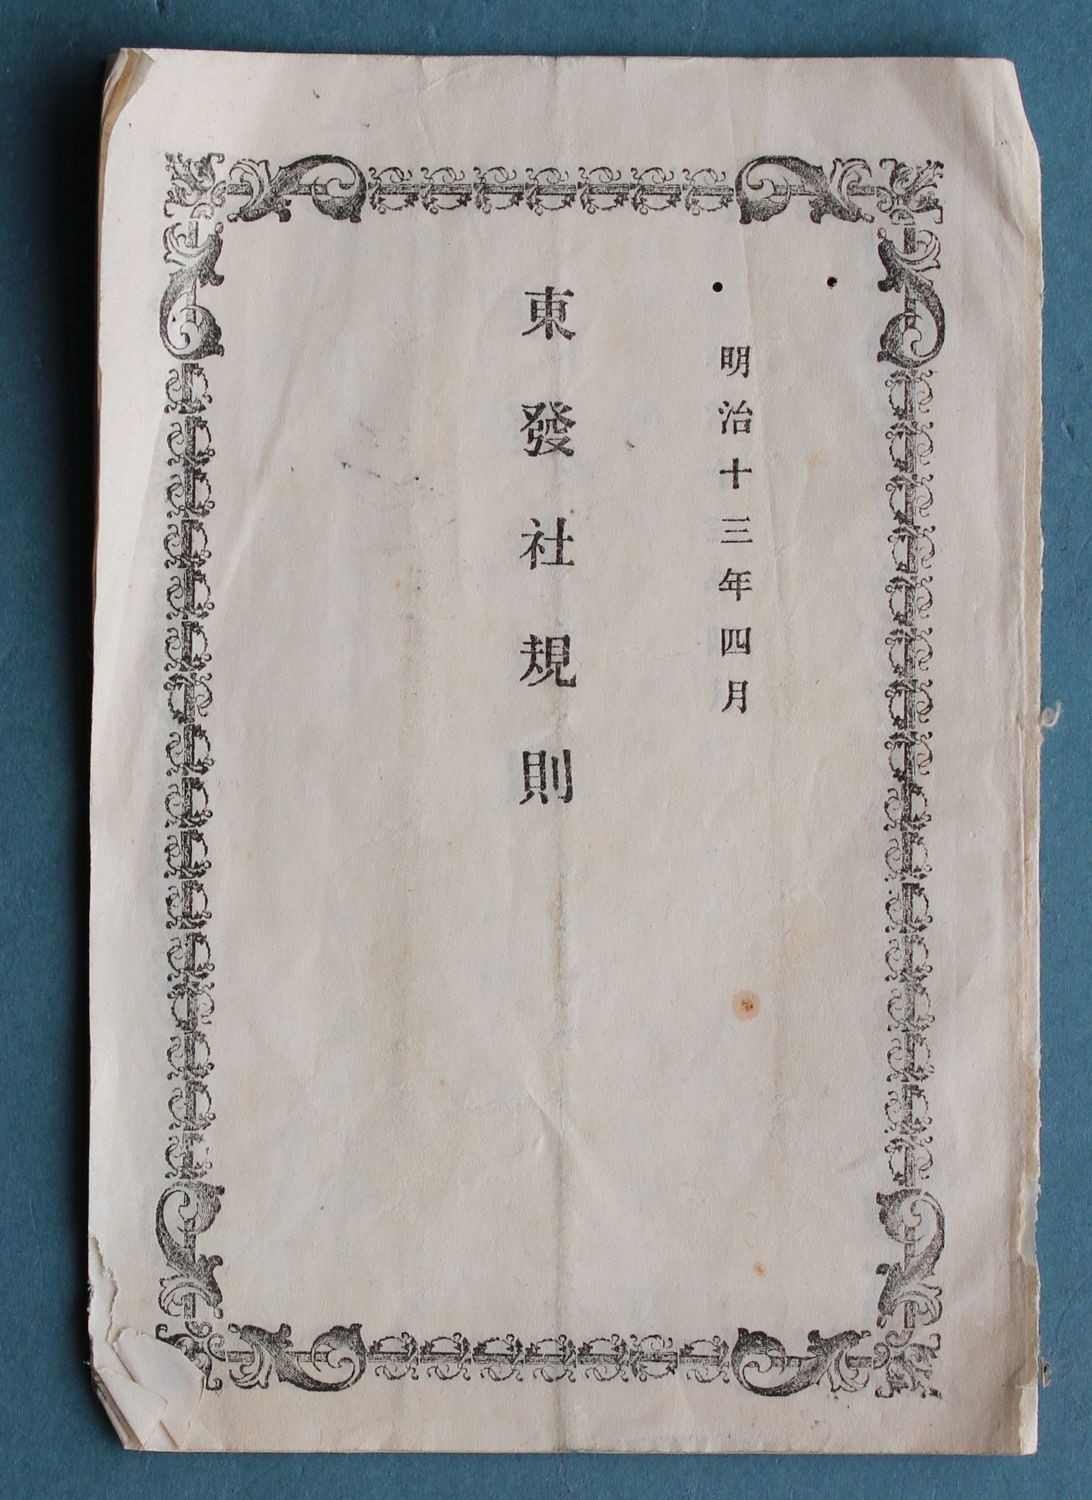 明治十三年四月
東發社規則